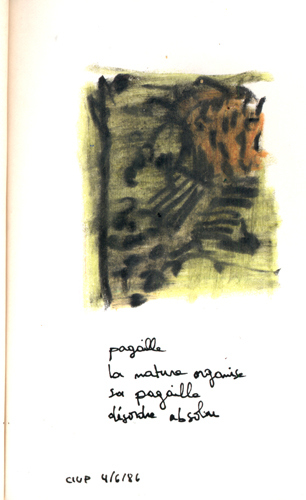 pagaille
la nature organise
sa pagaille
désordre absolu
CIUP 4/6/86